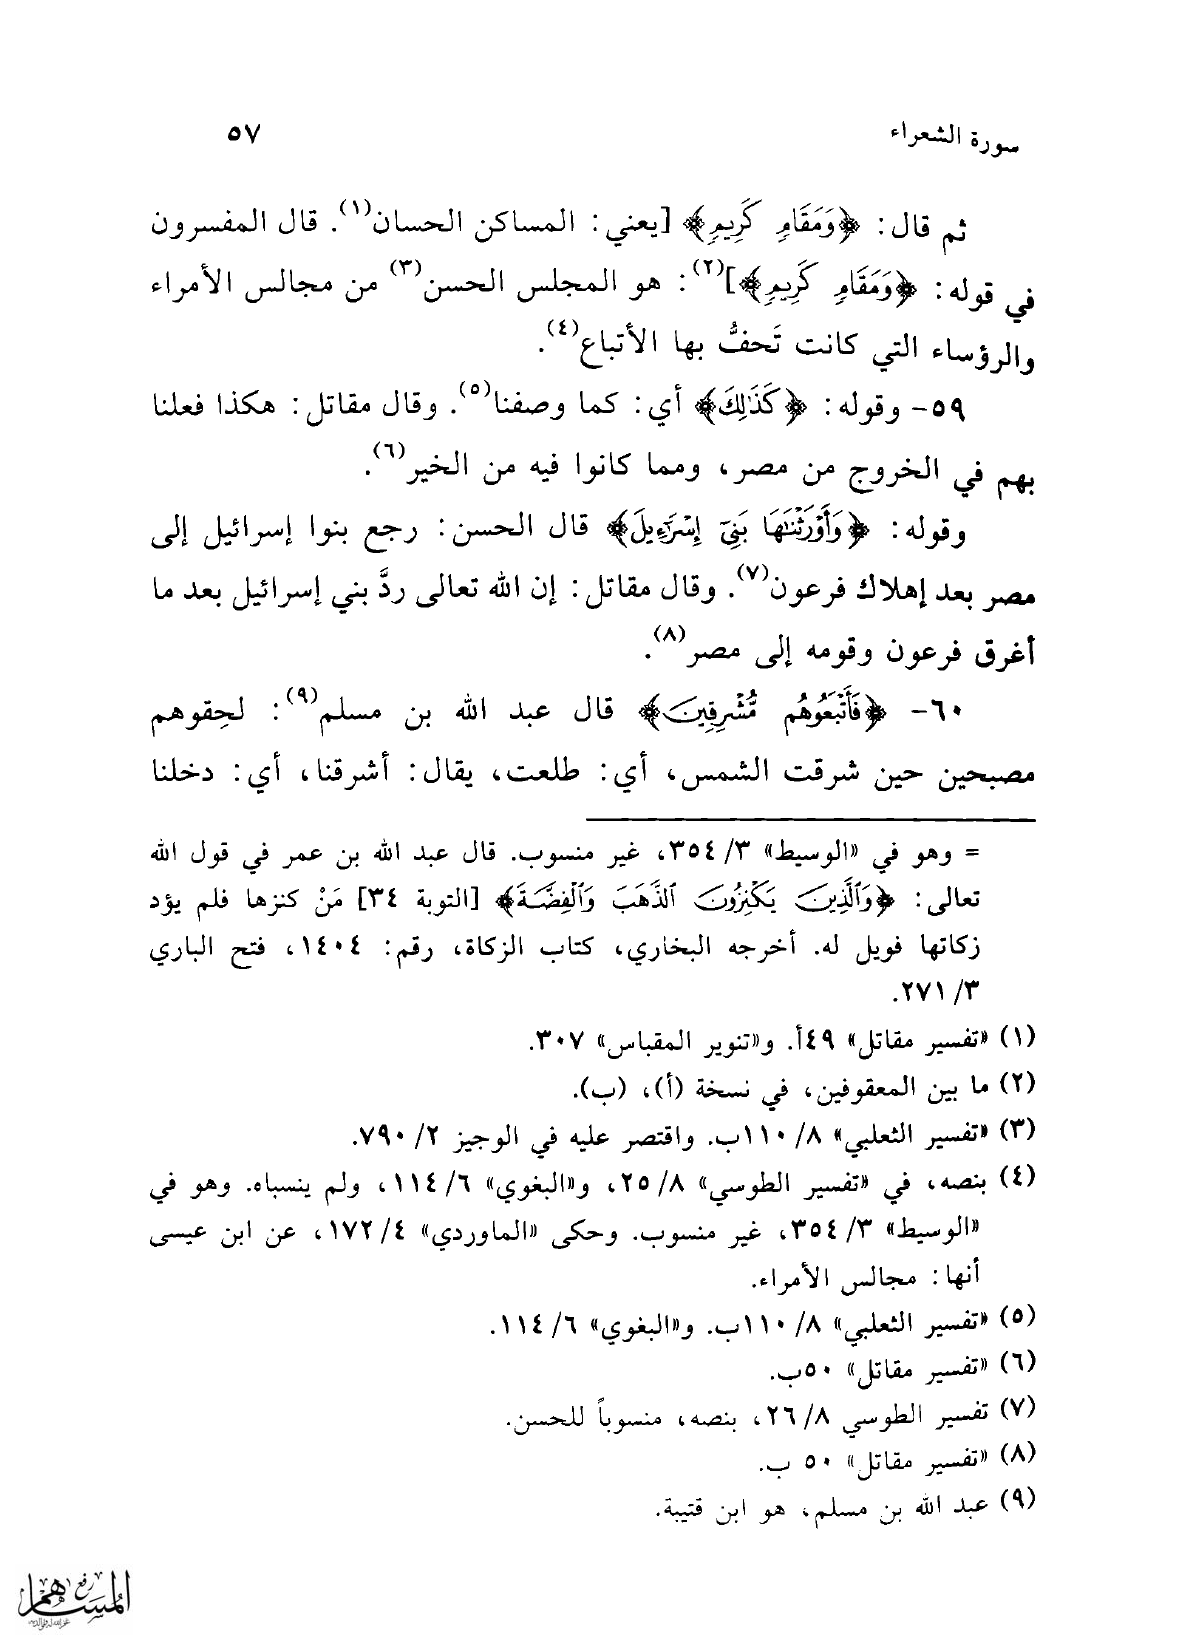 سورة الشعراء ٥٧
ثم قال: ﴿وَمَقَامٍ كَرِيمٍ﴾ [يعني: المساكن الحسان(١). قال المفسرون
في قوله: ﴿وَمَقَامٍ كَرِيمٍ﴾](٢): هو المجلس الحسن(٣) من مجالس الأمراء
والرؤساء التي كانت تَحفُّ بها الأتباع(٤).
٥٩- وقوله: ﴿كَذَٰلِكَ﴾ أي: كما وصفنا(٥). وقال مقاتل: هكذا فعلنا
بهم في الخروج من مصر، ومما كانوا فيه من الخير(٦).
وقوله: ﴿وَأَوْرَثْنَٰهَا بَنِيٓ إِسْرَٰٓءِيلَ﴾ قال الحسن: رجع بنوا إسرائيل إلى
مصر بعد إهلاك فرعون(٧). وقال مقاتل: إن الله تعالى ردَّ بني إسرائيل بعد ما
أغرق فرعون وقومه إلى مصر(٨).
٦٠- ﴿فَأَتْبَعُوهُم مُّشْرِقِينَ﴾ قال عبد الله بن مسلم(٩): لحِقوهم
مصبحين حين شرقت الشمس، أي: طلعت، يقال: أشرقنا، أي: دخلنا
= وهو في «الوسيط» ٣/ ٣٥٤، غير منسوب. قال عبد الله بن عمر في قول الله
تعالى: ﴿وَٱلَّذِينَ يَكْنِزُونَ ٱلذَّهَبَ وَٱلْفِضَّةَ﴾ [التوبة ٣٤] مَنْ كنزها فلم يؤد
زكاتها فويل له. أخرجه البخاري، كتاب الزكاة، رقم: ١٤٠٤، فتح الباري
٣/ ٢٧١.
(١) «تفسير مقاتل» ٤٩أ. و«تنوير المقباس» ٣٠٧.
(٢) ما بين المعقوفين، في نسخة (أ)، (ب).
(٣) «تفسير الثعلبي» ٨/ ١١٠ب. واقتصر عليه في الوجيز ٢/ ٧٩٠.
(٤) بنصه، في «تفسير الطوسي» ٨/ ٢٥، و«البغوي» ٦/ ١١٤، ولم ينسباه. وهو في
«الوسيط» ٣/ ٣٥٤، غير منسوب. وحكى «الماوردي» ٤/ ١٧٢، عن ابن عيسى
أنها: مجالس الأمراء.
(٥) «تفسير الثعلبي» ٨/ ١١٠ب. و«البغوي» ٦/ ١١٤.
(٦) «تفسير مقاتل» ٥٠ب.
(٧) تفسير الطوسي ٨/ ٢٦، بنصه، منسوباً للحسن.
(٨) «تفسير مقاتل» ٥٠ ب.
(٩) عبد الله بن مسلم، هو ابن قتيبة.
رفع
المساهم